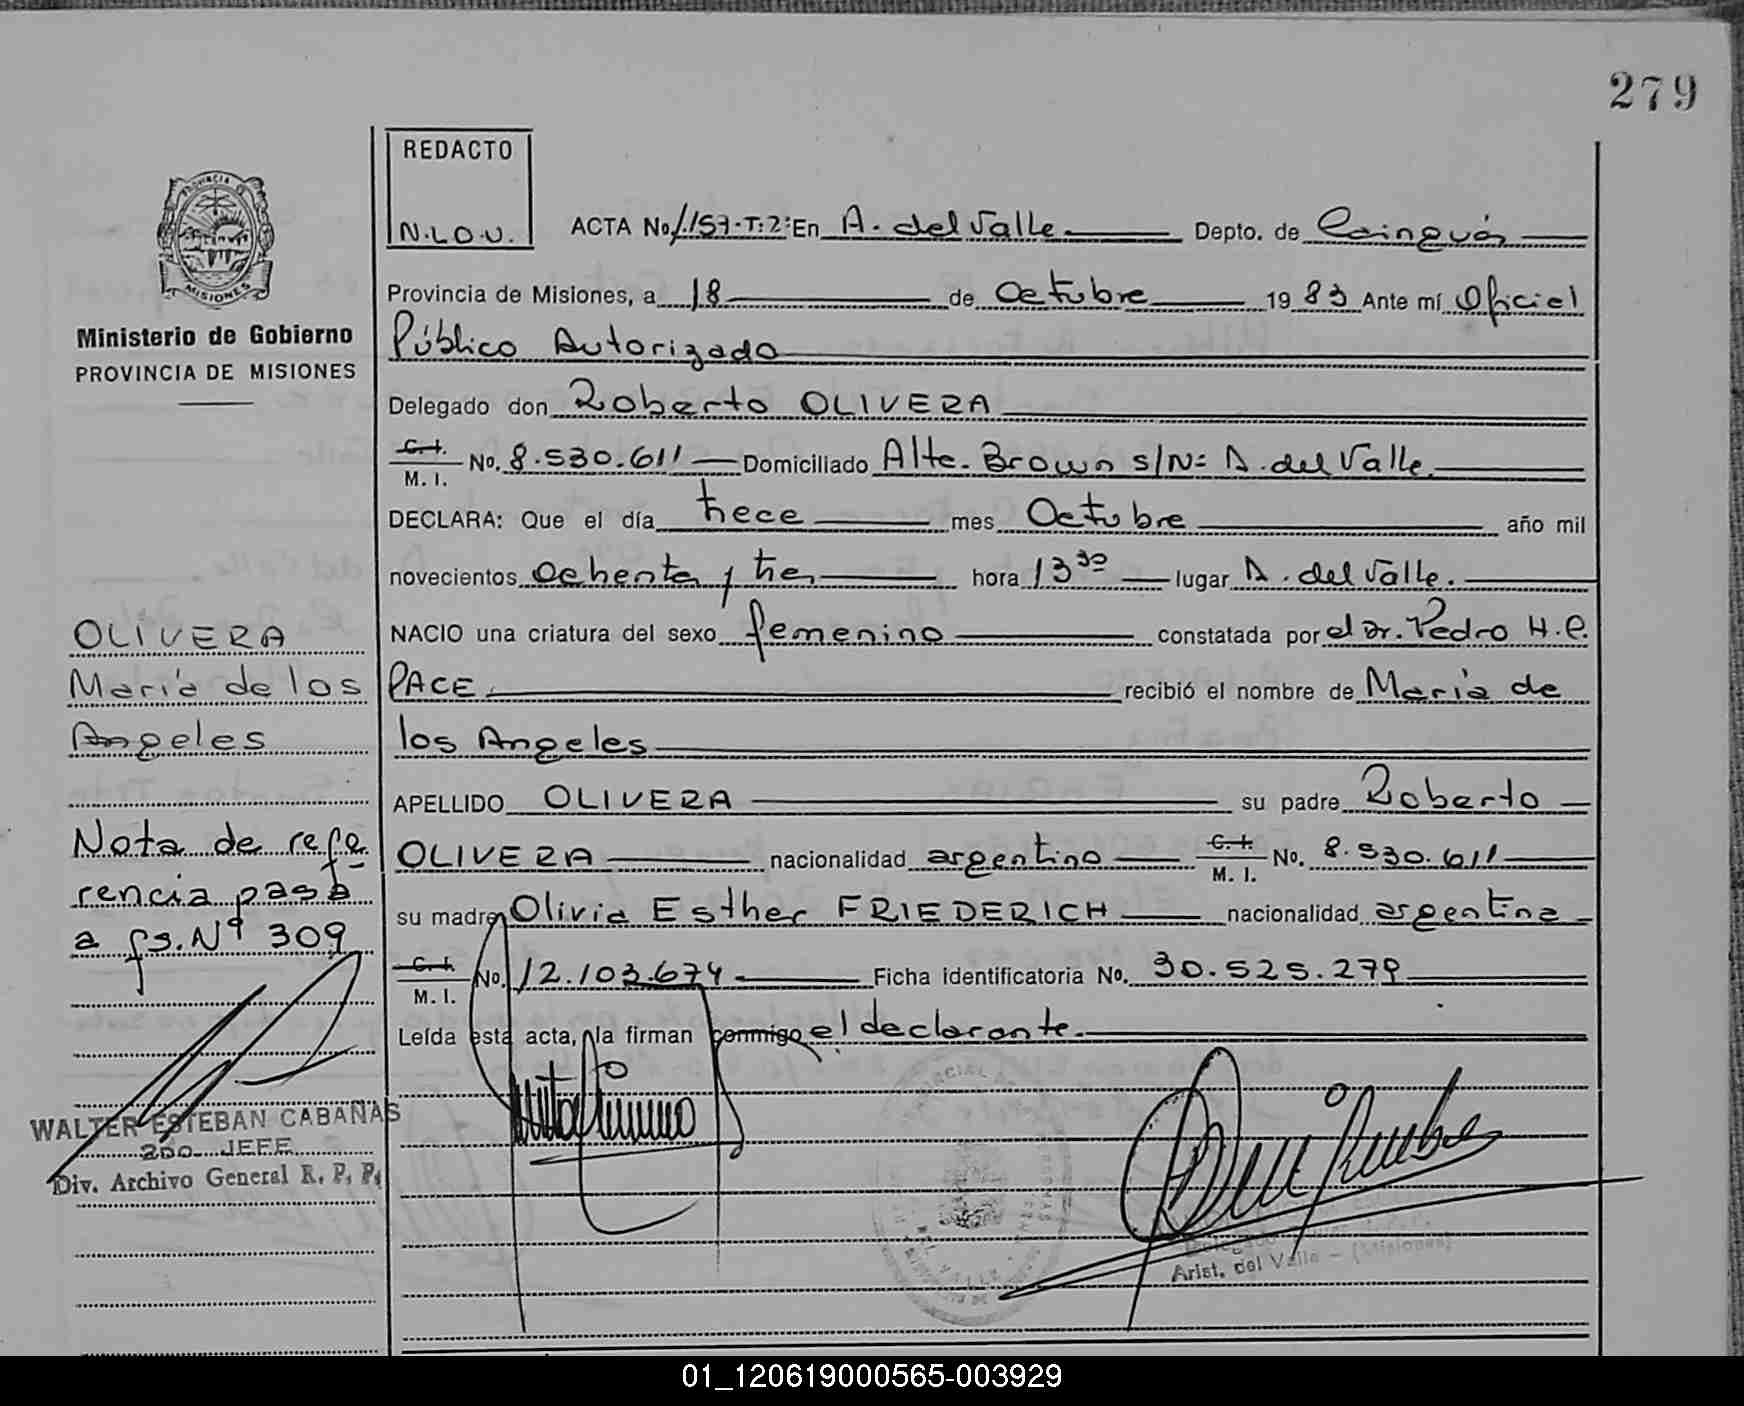 279
REDACTO
N.L.O.U.
ACTA No. 1.157-T:2: En A. del Valle Depto. de Cainguás
Provincia de Misiones, a 18 de Octubre 1983 Ante mí Oficial
Público Autorizado
Delegado don Roberto OLIVERA
C. I.
M. I. No. 8.530.611 Domiciliado Alte. Brown s/Nº A. del Valle.
DECLARA: Que el día trece mes Octubre año mil
novecientos ochenta y tres hora 13 30 lugar A. del Valle.
NACIO una criatura del sexo femenino constatada por el Dr. Pedro H.C.
PACE recibió el nombre de María de
los Angeles
APELLIDO OLIVERA su padre Roberto
OLIVERA nacionalidad argentino C. I. M. I. No. 8.530.611
su madre Olivia Esther FRIEDERICH nacionalidad argentina
C. I.
M. I. No. 12.103.674 Ficha identificatoria No. 30.525.279
Leída esta acta, la firman conmigo el declarante.
Arist. del Valle - (Misiones)
PROVINCIA DE
MISIONES
Ministerio de Gobierno
PROVINCIA DE MISIONES
OLIVERA
María de los
Angeles
Nota de refe
rencia pasa
a fs. Nº 309
WALTER ESTEBAN CABAÑAS
2do. JEFE
Div. Archivo General R. P. P.
01_120619000565-003929